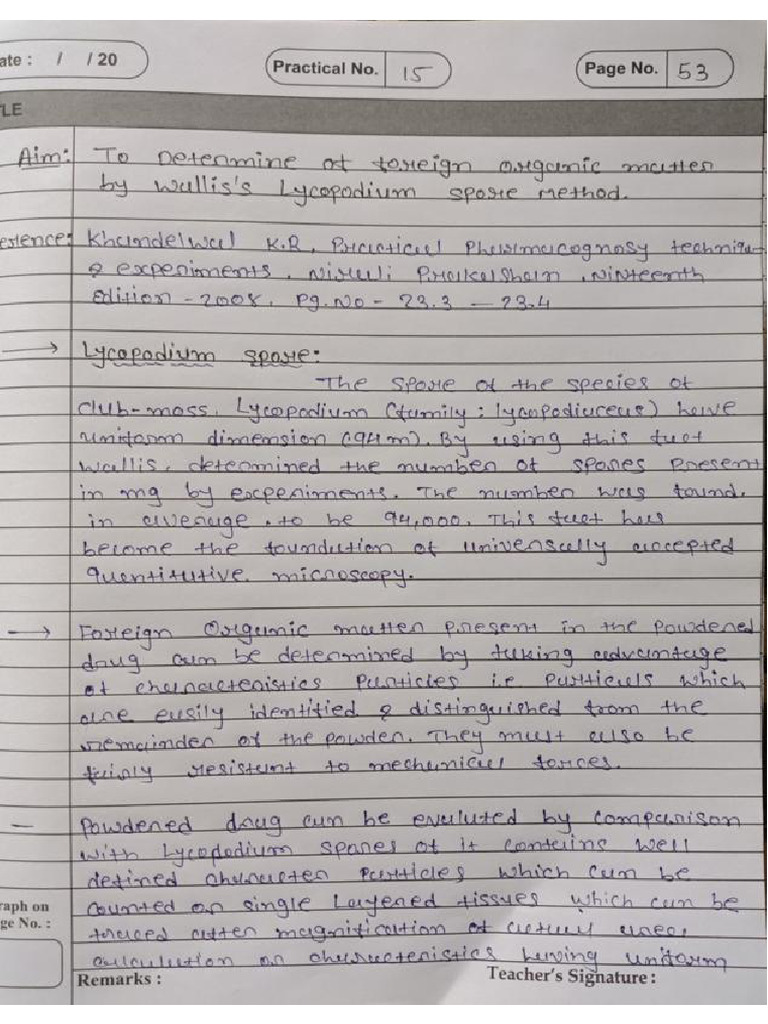 ate : / / 20
Practical No. 15
Page No. 53
LE
Aim: To Determine of foreign organic matter
by Wallis's Lycopodium spore method.
erence: Khandelwal K.R, Practical Pharmacognosy technique
& experiments, Nirali Prakashan, Ninteenth
Edition - 2008, Pg.No - 23.3 - 23.4
→ Lycopodium spore:
The spore of the species of
club-moss, Lycopodium (family: lycopodiaceae) have
uniform dimension (94m). By using this fact
wallis, determined the number of spores present
in mg by experiments. The number was found,
in average, to be 94,000. This fact has
become the foundation of universally accepted
quantitative microscopy.
→ Foreign Organic matter present in the powdered
drug can be determined by taking advantage
of characteristics particles i.e particals which
are easily identified & distinguished from the
remainder of the powder. They must also be
fairly resistant to mechanical forces.
- Powdered drug can be evaluted by comparison
with Lycopodium spores of it contains well
defined character particles which can be
counted or single layered tissues which can be
traced after magnification of actual area,
calculation or characteristics having uniform
raph on
ge No. :
Remarks :
Teacher's Signature :